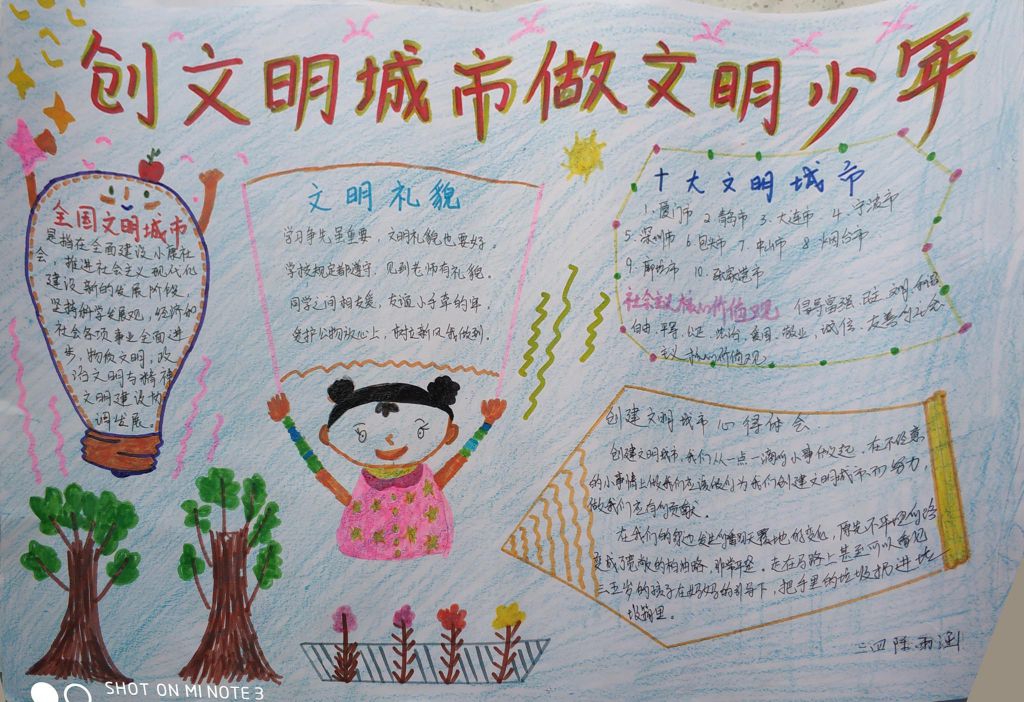 创文明城市做文明少年
全国文明城市
是指在全面建设小康社
会,推进社会主义现代化
建设新的发展阶段,
坚持科学发展观,经济和
社会各项事业全面进
步,物质文明,政
治文明与精神
文明建设协
调发展。
文明礼貌
学习争先虽重要,文明礼貌也要好。
学校规定都遵守,见到老师有礼貌。
同学之间相友爱,友谊小
爱护公物放心上,树立新风我做到。
十大文明城市
1.厦门市 2.青岛市 3.大连市 4.宁波市
5.深圳市 6.包头市 7.中山市 8.烟台市
9.廊坊市 10.张家港市
社会主义核心价值观 倡导富强 民主 文明 和谐
自由,平等,公正,法治,爱国,敬业,诚信,友善
义核心价值观。
创建文明城市心得体会
创建文明城市,我们从一点一滴的小事做起,在不经意
的小事情上做我们应该做的为我们创建文明城市而努力,
做我们应有的贡献。
在我们的家也发生了翻天覆地的变化,原先不平坦的路
变成了宽敞的柏油路,非常平坦。走在马路上甚至可以看见
三五岁的孩子在妈妈的引导下,把手里的垃圾扔进垃
圾箱里。
二四 陈雨涵
SHOT ON MI NOTE 3